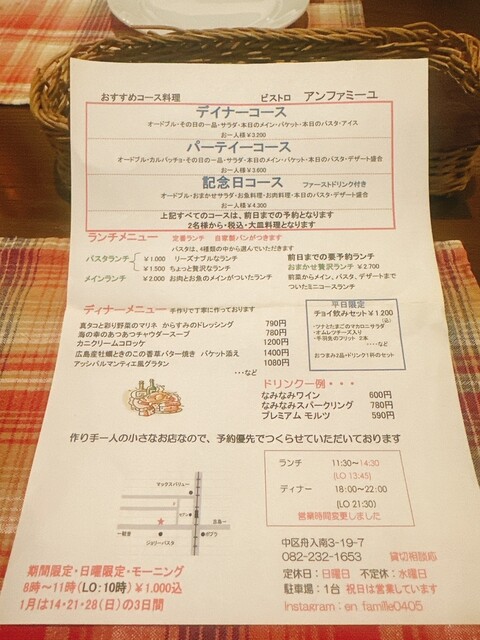 おすすめコース料理　ビストロ　アンファミーユ
デイナーコース
オードブル・その日の一品・サラダ・本日のメイン・バケット・本日のパスタ・アイス
お一人様¥3.200
パーティーコース
オードブル・カルパッチョ・その日の一品・サラダ・本日のメイン・バケット・本日のパスタ・デザート盛合
お一人様¥3.600
記念日コース　ファーストドリンク付き
オードブル・おまかせサラダ・お魚料理・お肉料理・本日のパスタ・デザート盛合
お一人様¥4.300
上記すべてのコースは、前日までの予約となります
2名様から・税込・大皿料理となります
ランチメニュー　定番ランチ　自家製パンがつきます
パスタは、4種類の中から選んでいただきます
パスタランチ　¥1.000　リーズナブルなランチ
¥1.500　ちょっと贅沢なランチ
メインランチ　¥2.000　お肉とお魚のメインがついたランチ
前日までの要予約ランチ
おまかせ贅沢ランチ　¥2.700
前菜からメイン、パスタ、デザートまで
ついたミニコースランチ
ディナーメニュー　手作りで丁寧に作っております
真タコと彩り野菜のマリネ　からすみのドレッシング　790円
海の幸のあつあつチャウダースープ　780円
カニクリームコロッケ　1200円
広島産牡蠣ときのこの香草バター焼き　バケット添え　1400円
アッシパルマンティエ風グラタン　1080円
・・・など
平日限定
チョイ飲みセット¥1.200
(込)
・ツナとたまごのマカロニサラダ
・オムレツチーズ入り
・手羽先のフリット　2本
・・・・など
おつまみ2品・ドリンク1杯のセット
ドリンク一例・・・
なみなみワイン　600円
なみなみスパークリング　780円
プレミアム モルツ　590円
作り手一人の小さなお店なので、予約優先でつくらせていただいております
マックスバリュー
一般道
ジョリーパスタ
ポプラ
ランチ　11:30～14:30
(LO 13:45)
ディナー　18:00～22:00
(LO 21:30)
営業時間変更しました
中区舟入南3-19-7
082-232-1653　貸切相談応
定休日：日曜日　不定休：水曜日
駐車場：1台　祝日は営業しています
Instagram：en famille0405
期間限定・日曜限定・モーニング
8時～11時(LO:10時)¥1.000込
1月は14・21・28(日)の3日間